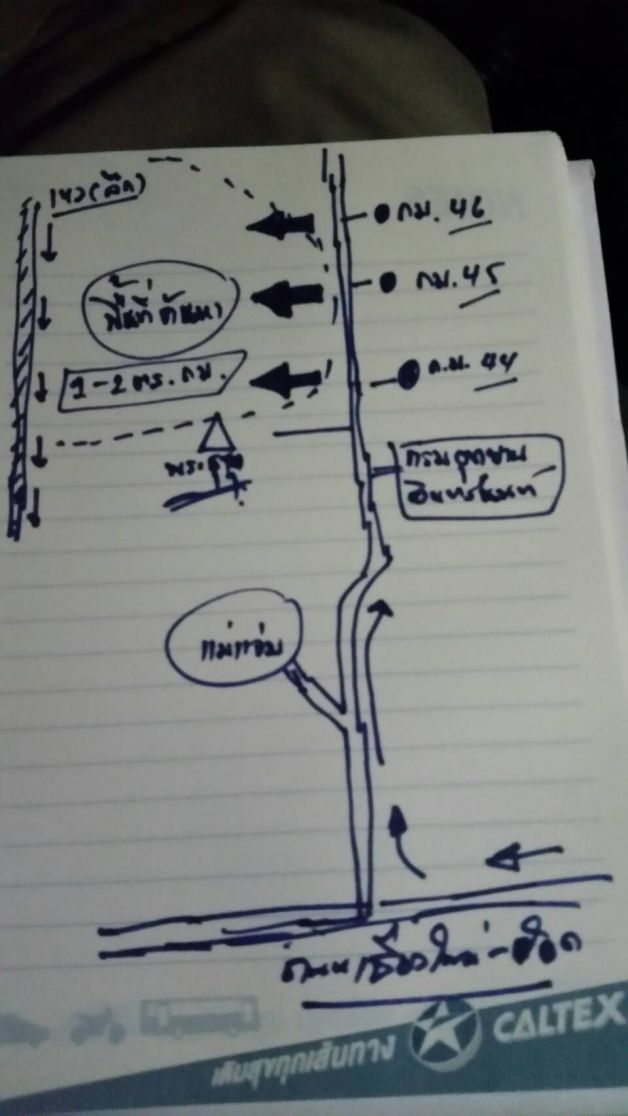 เหว(ลึก)
กม. 46
พื้นที่ค้นหา
กม. 45
1-2 ตร. กม.
ก.ม. 44
พระธาตุ
กรมอุทยาน
อินทนนท์
แม่แจ่ม
ถนนเชียงใหม่-ฮอด
เติมสุขทุกเส้นทาง
CALTEX